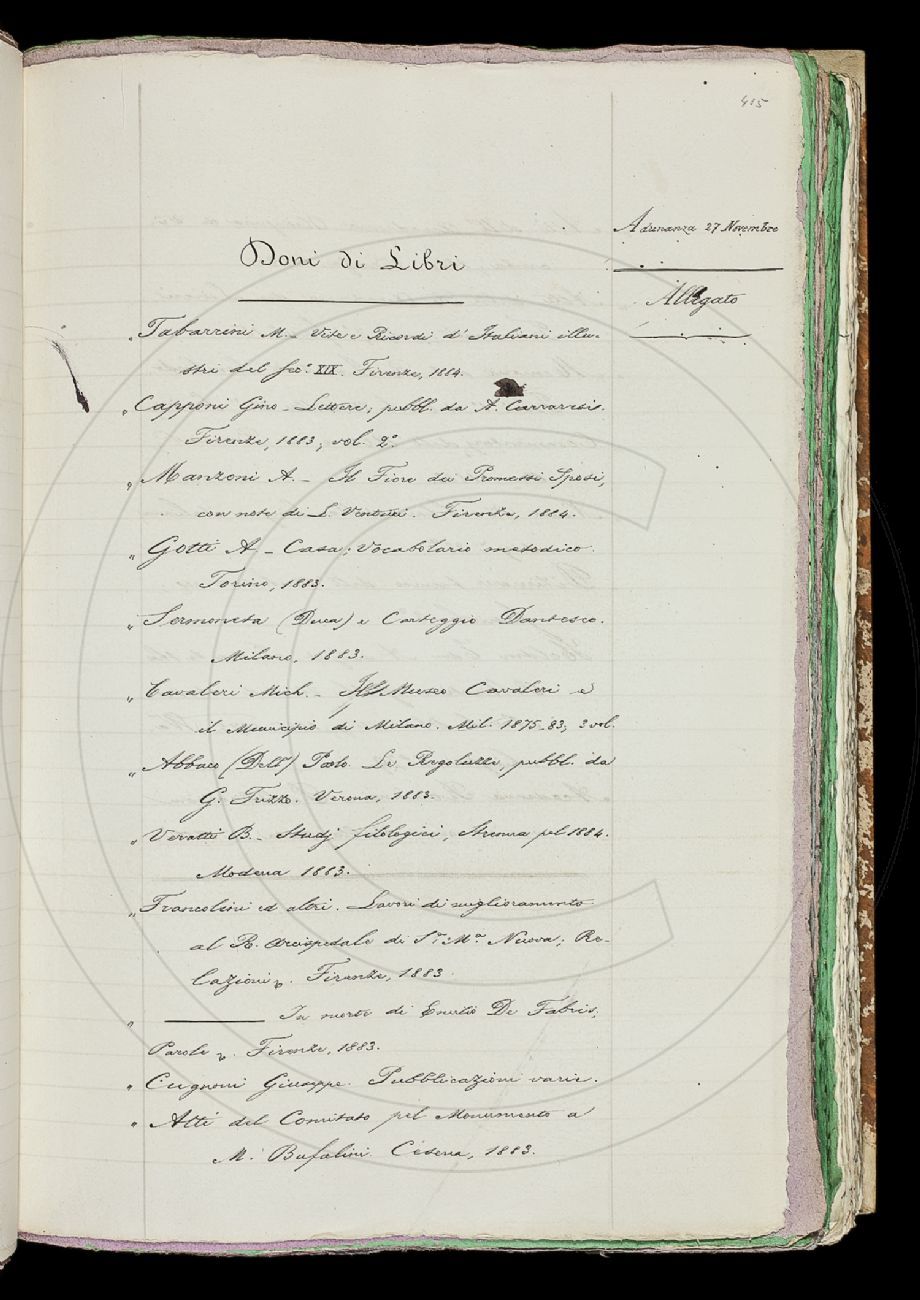 415
Adunanza 27 Novembre
Allegato
Doni di Libri
„ Tabarrini M. - Vite e Ricordi d' Italiani illu-
stri del Sec.° XIX. Firenze, 1884.
„ Capponi Gino - Lettere; pubbl. da A. Carraresi.
Firenze, 1883; vol. 2.°
„ Manzoni A. - Il Fiore dei Promessi Sposi,
con note di L. Venturi. Firenze, 1884.
„ Gotti A - Casa; Vocabolario metodico.
Torino, 1883.
„ Sermoneta (Duca) e Carteggio Dantesco.
Milano, 1883.
„ Cavaleri Mich. - Il Museo Cavaleri e
il Municipio di Milano. Mil. 1875-83, 3 vol.
„ Abbaco (Dell') Paolo. Le Regoluzze, pubbl. da
G. Frizzo. Verona, 1883.
„ Veratti B. - Studj filologici, Strenna pel 1884.
Modena 1883.
„ Francolini ed altri. Lavori di miglioramento
al R. Arcispedale di S.ta M.a Nuova; Re-
lazioni. Firenze, 1883.
„ ——— In morte di Emilio De Fabris,
Parole. Firenze, 1883.
„ Cugnoni Giuseppe. Pubblicazioni varie.
„ Atti del Comitato pel Monumento a
M. Bufalini. Cesena, 1883.